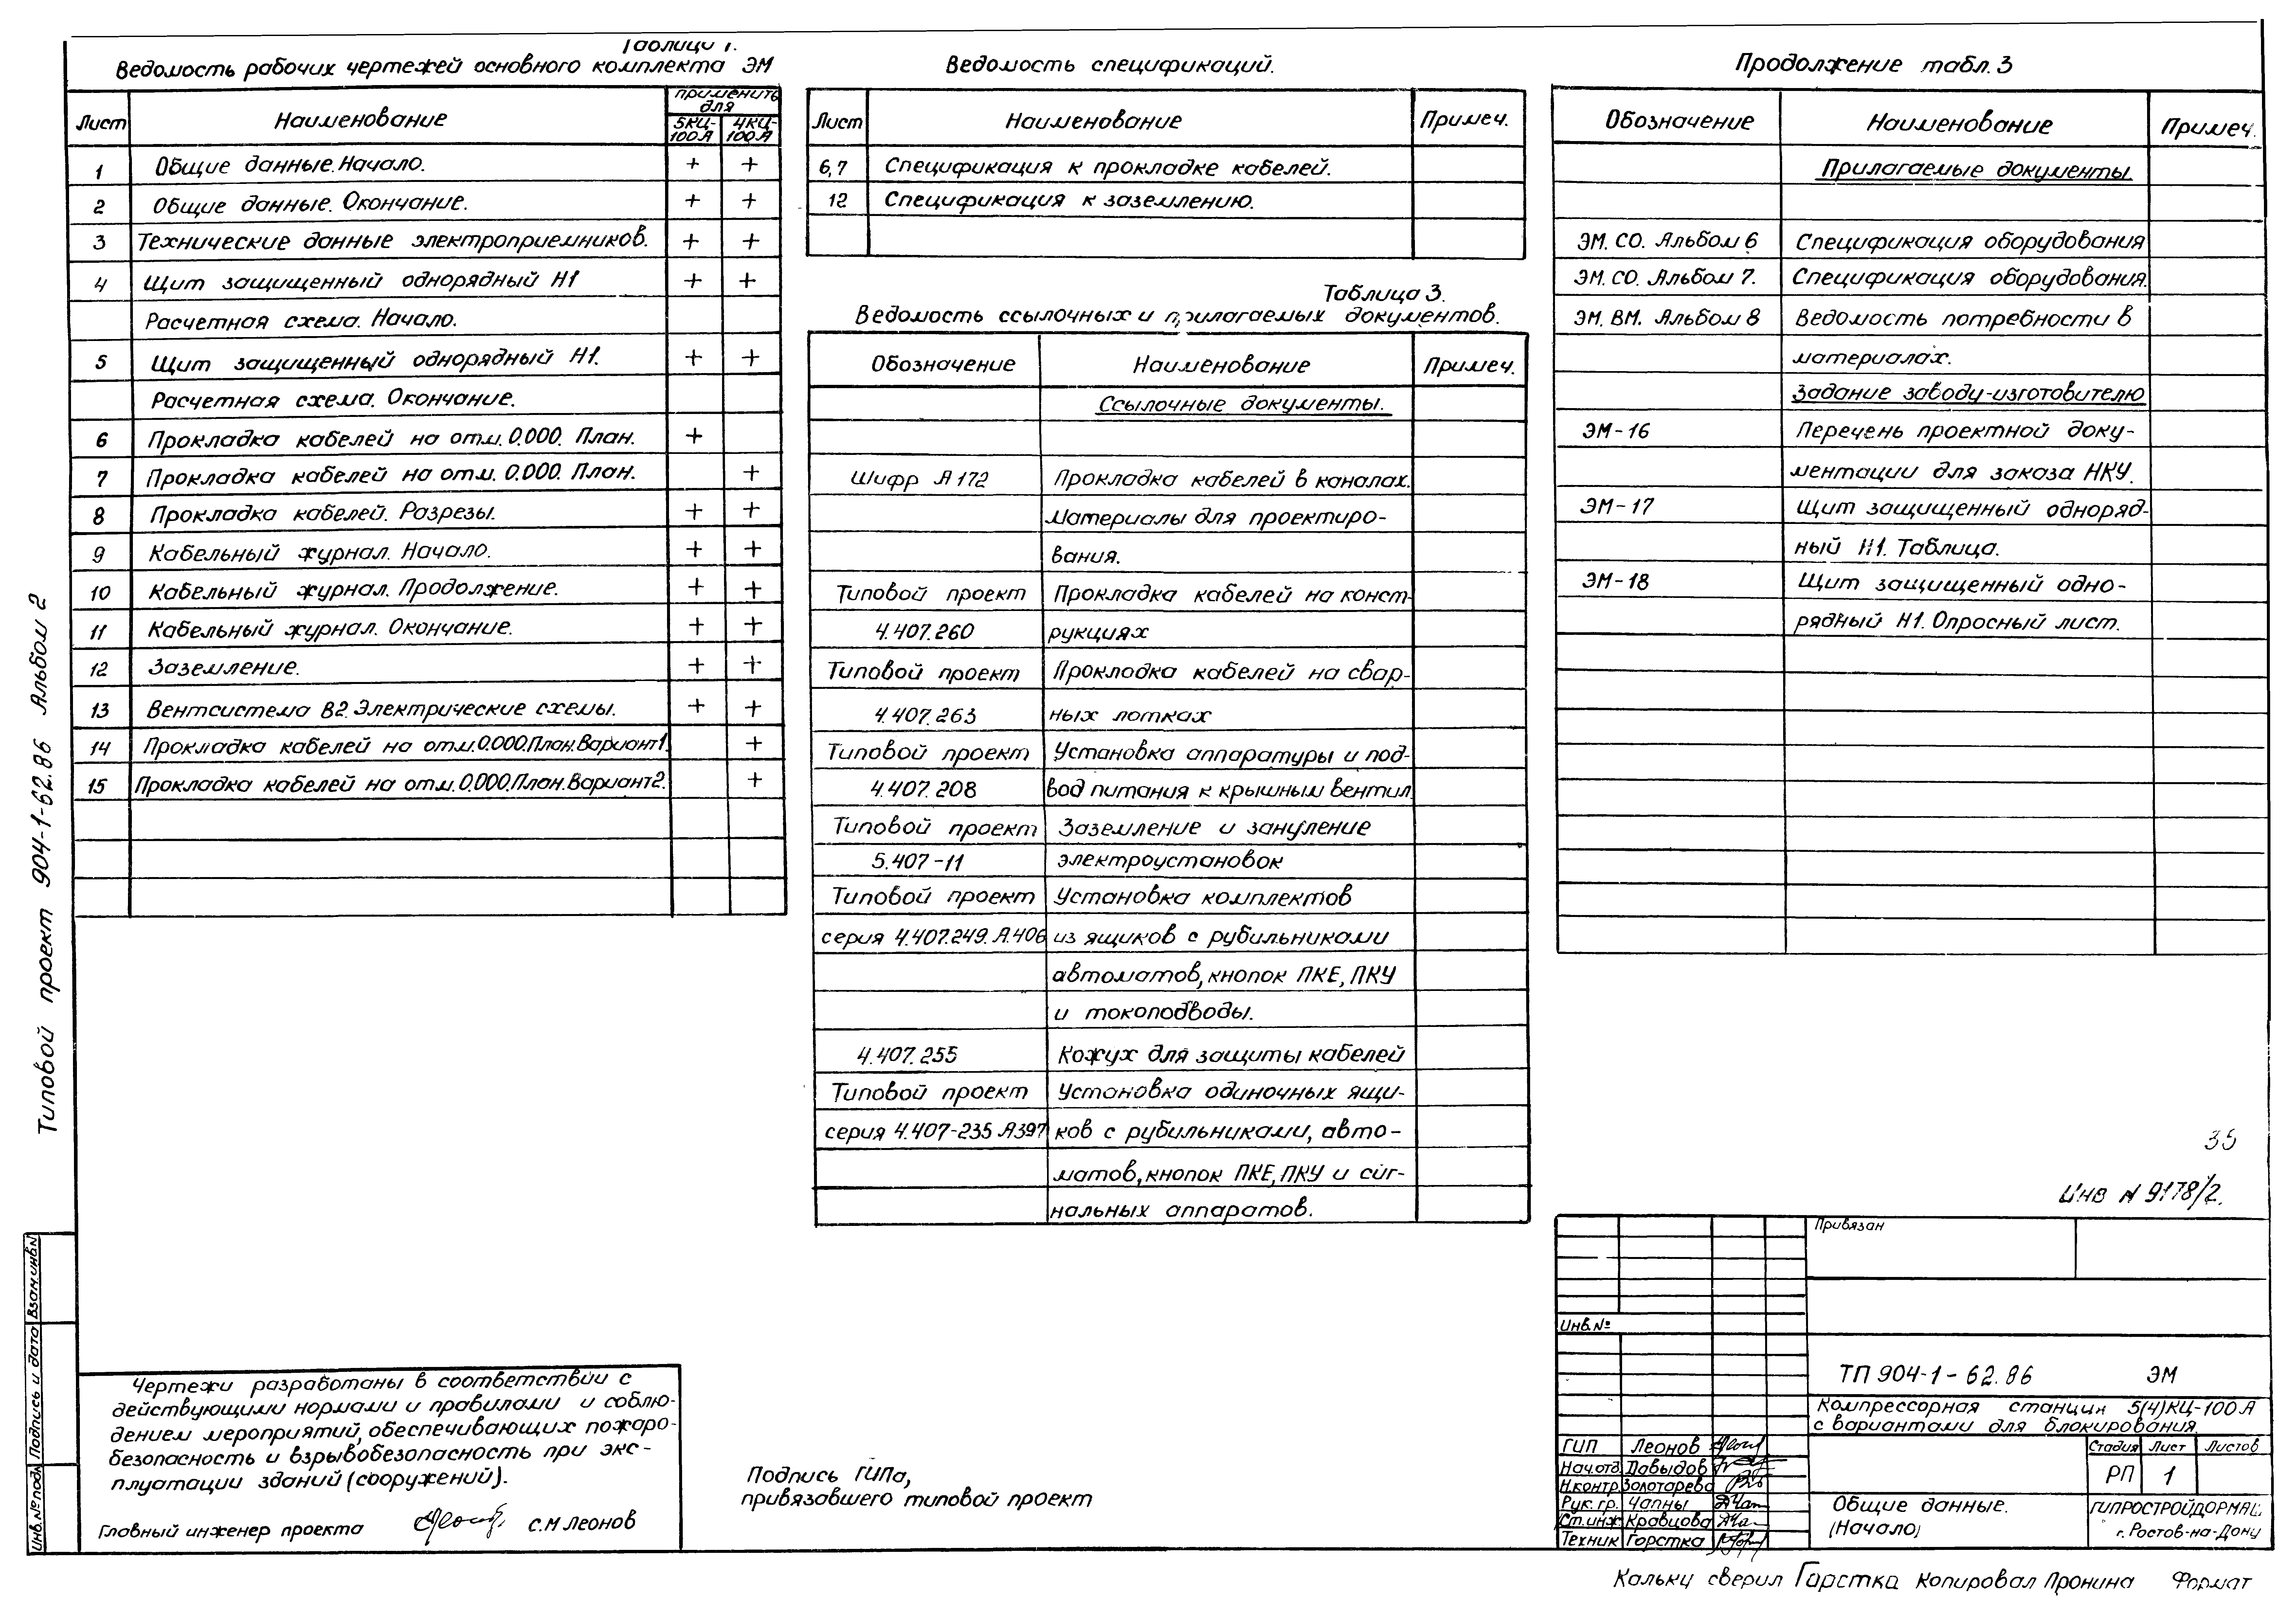 Таблица 1.
Ведомость рабочих чертежей основного комплекта ЭМ
Лист Наименование применить для
5КЦ-100А 4КЦ-100А
1 Общие данные. Начало. + +
2 Общие данные. Окончание. + +
3 Технические данные электроприемников. + +
4 Щит защищенный однорядный Н1 + +
Расчетная схема. Начало.
5 Щит защищенный однорядный Н1. + +
Расчетная схема. Окончание.
6 Прокладка кабелей на отм. 0.000. План. +
7 Прокладка кабелей на отм. 0.000. План. +
8 Прокладка кабелей. Разрезы. + +
9 Кабельный журнал. Начало. + +
10 Кабельный журнал. Продолжение. + +
11 Кабельный журнал. Окончание. + +
12 Заземление. + +
13 Вентсистема В2. Электрические схемы. + +
14 Прокладка кабелей на отм. 0.000. План. Вариант 1. +
15 Прокладка кабелей на отм. 0.000. План. Вариант 2. +
Ведомость спецификаций.
Лист Наименование Примеч.
6,7 Спецификация к прокладке кабелей.
12 Спецификация к заземлению.
Таблица 3.
Ведомость ссылочных и прилагаемых документов.
Обозначение Наименование Примеч.
Ссылочные документы.
Шифр А172 Прокладка кабелей в каналах.
Материалы для проектиро-
вания.
Типовой проект Прокладка кабелей на конст-
4.407.260 рукциях
Типовой проект Прокладка кабелей на свар-
4.407.263 ных лотках
Типовой проект Установка аппаратуры и под-
4.407.208 вод питания к крышным вентил.
Типовой проект Заземление и зануление
5.407-11 электроустановок
Типовой проект Установка комплектов
серия 4.407.249. А.406 из ящиков с рубильниками
автоматов, кнопок ПКЕ, ПКУ
и токоподводы.
4.407.255 Кожух для защиты кабелей
Типовой проект Установка одиночных ящи-
серия 4.407-235 А397 ков с рубильниками, авто-
матов, кнопок ПКЕ, ПКУ и сиг-
нальных аппаратов.
Продолжение табл. 3
Обозначение Наименование Примеч.
Прилагаемые документы
ЭМ. СО. Альбом 6 Спецификация оборудования
ЭМ. СО. Альбом 7. Спецификация оборудования.
ЭМ. ВМ. Альбом 8 Ведомость потребности в
материалах.
Задание заводу-изготовителю
ЭМ-16 Перечень проектной доку-
ментации для заказа НКУ.
ЭМ-17 Щит защищенный одноряд-
ный Н1. Таблица.
ЭМ-18 Щит защищенный одно-
рядный Н1. Опросный лист.
Типовой проект 904-1-62.86 Альбом 2
Взам.инв.N
Подпись и дата
Инв.№ подл
Чертежи разработаны в соответствии с
действующими нормами и правилами и соблю-
дением мероприятий, обеспечивающих пожаро-
безопасность и взрывобезопасность при экс-
плуатации зданий (сооружений).
Главный инженер проекта С.М Леонов
Подпись ГИПа,
привязавшего типовой проект
35
Инв N 9178/2.
Привязан
Инв.№
ТП 904-1-62.86 ЭМ
Компрессорная станция 5(4)КЦ-100А
с вариантами для блокирования.
Стадия Лист Листов
РП 1
ГИП Леонов
Нач.отд. Давыдов
Н.контр. Золотарева
Рук. гр. Чапны
Ст.инж. Кравцова
Техник Горстка
Общие данные.
(Начало)
ГИПРОСТРОЙДОРМАШ
г. Ростов-на-Дону
Кальку сверил Горстка Копировал Пронина Формат